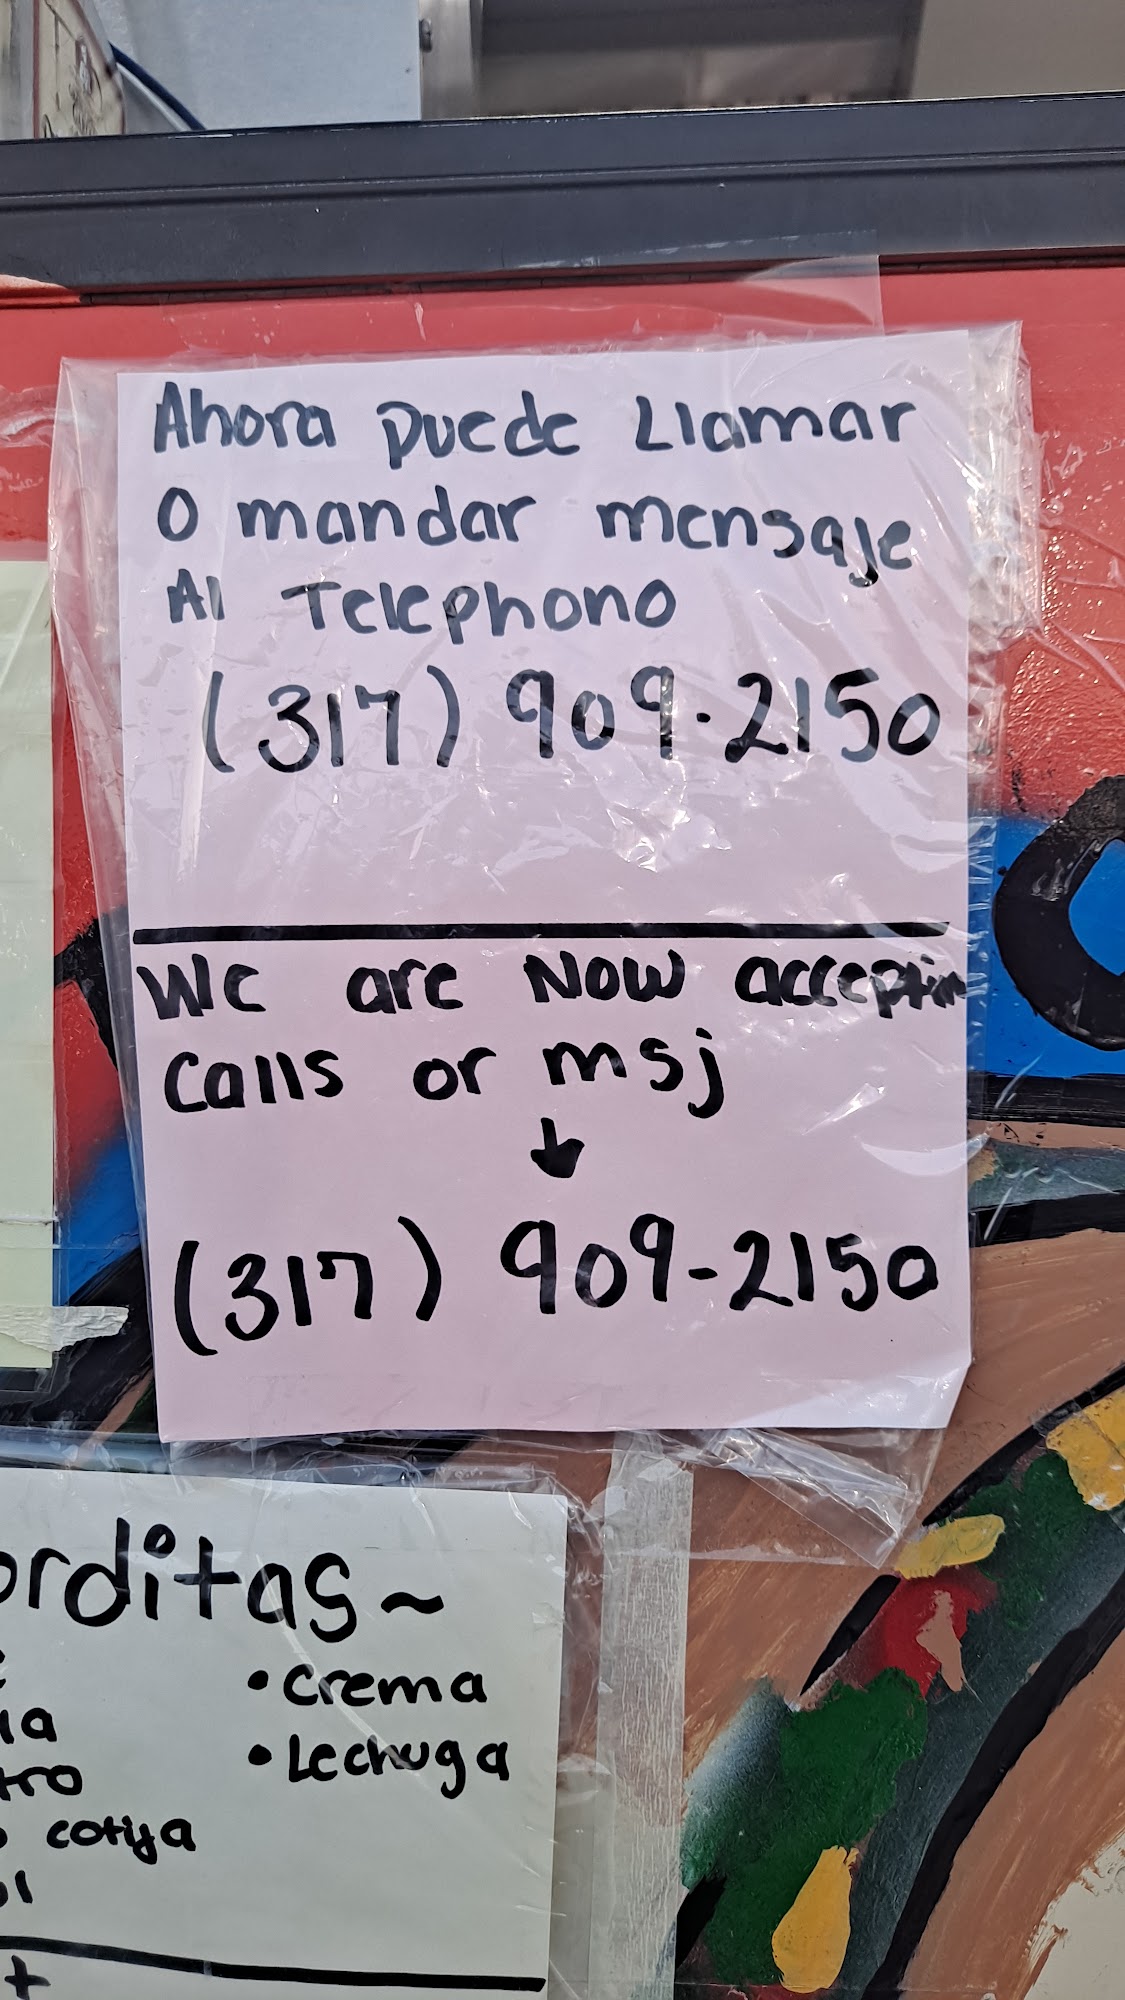 Ahora puede Llamar
O mandar mensaje
Al Telephono
(317) 909-2150
We are Now acceptin
calls or msj
(317) 909-2150
orditas~
• crema
• Lechuga
cotija
+